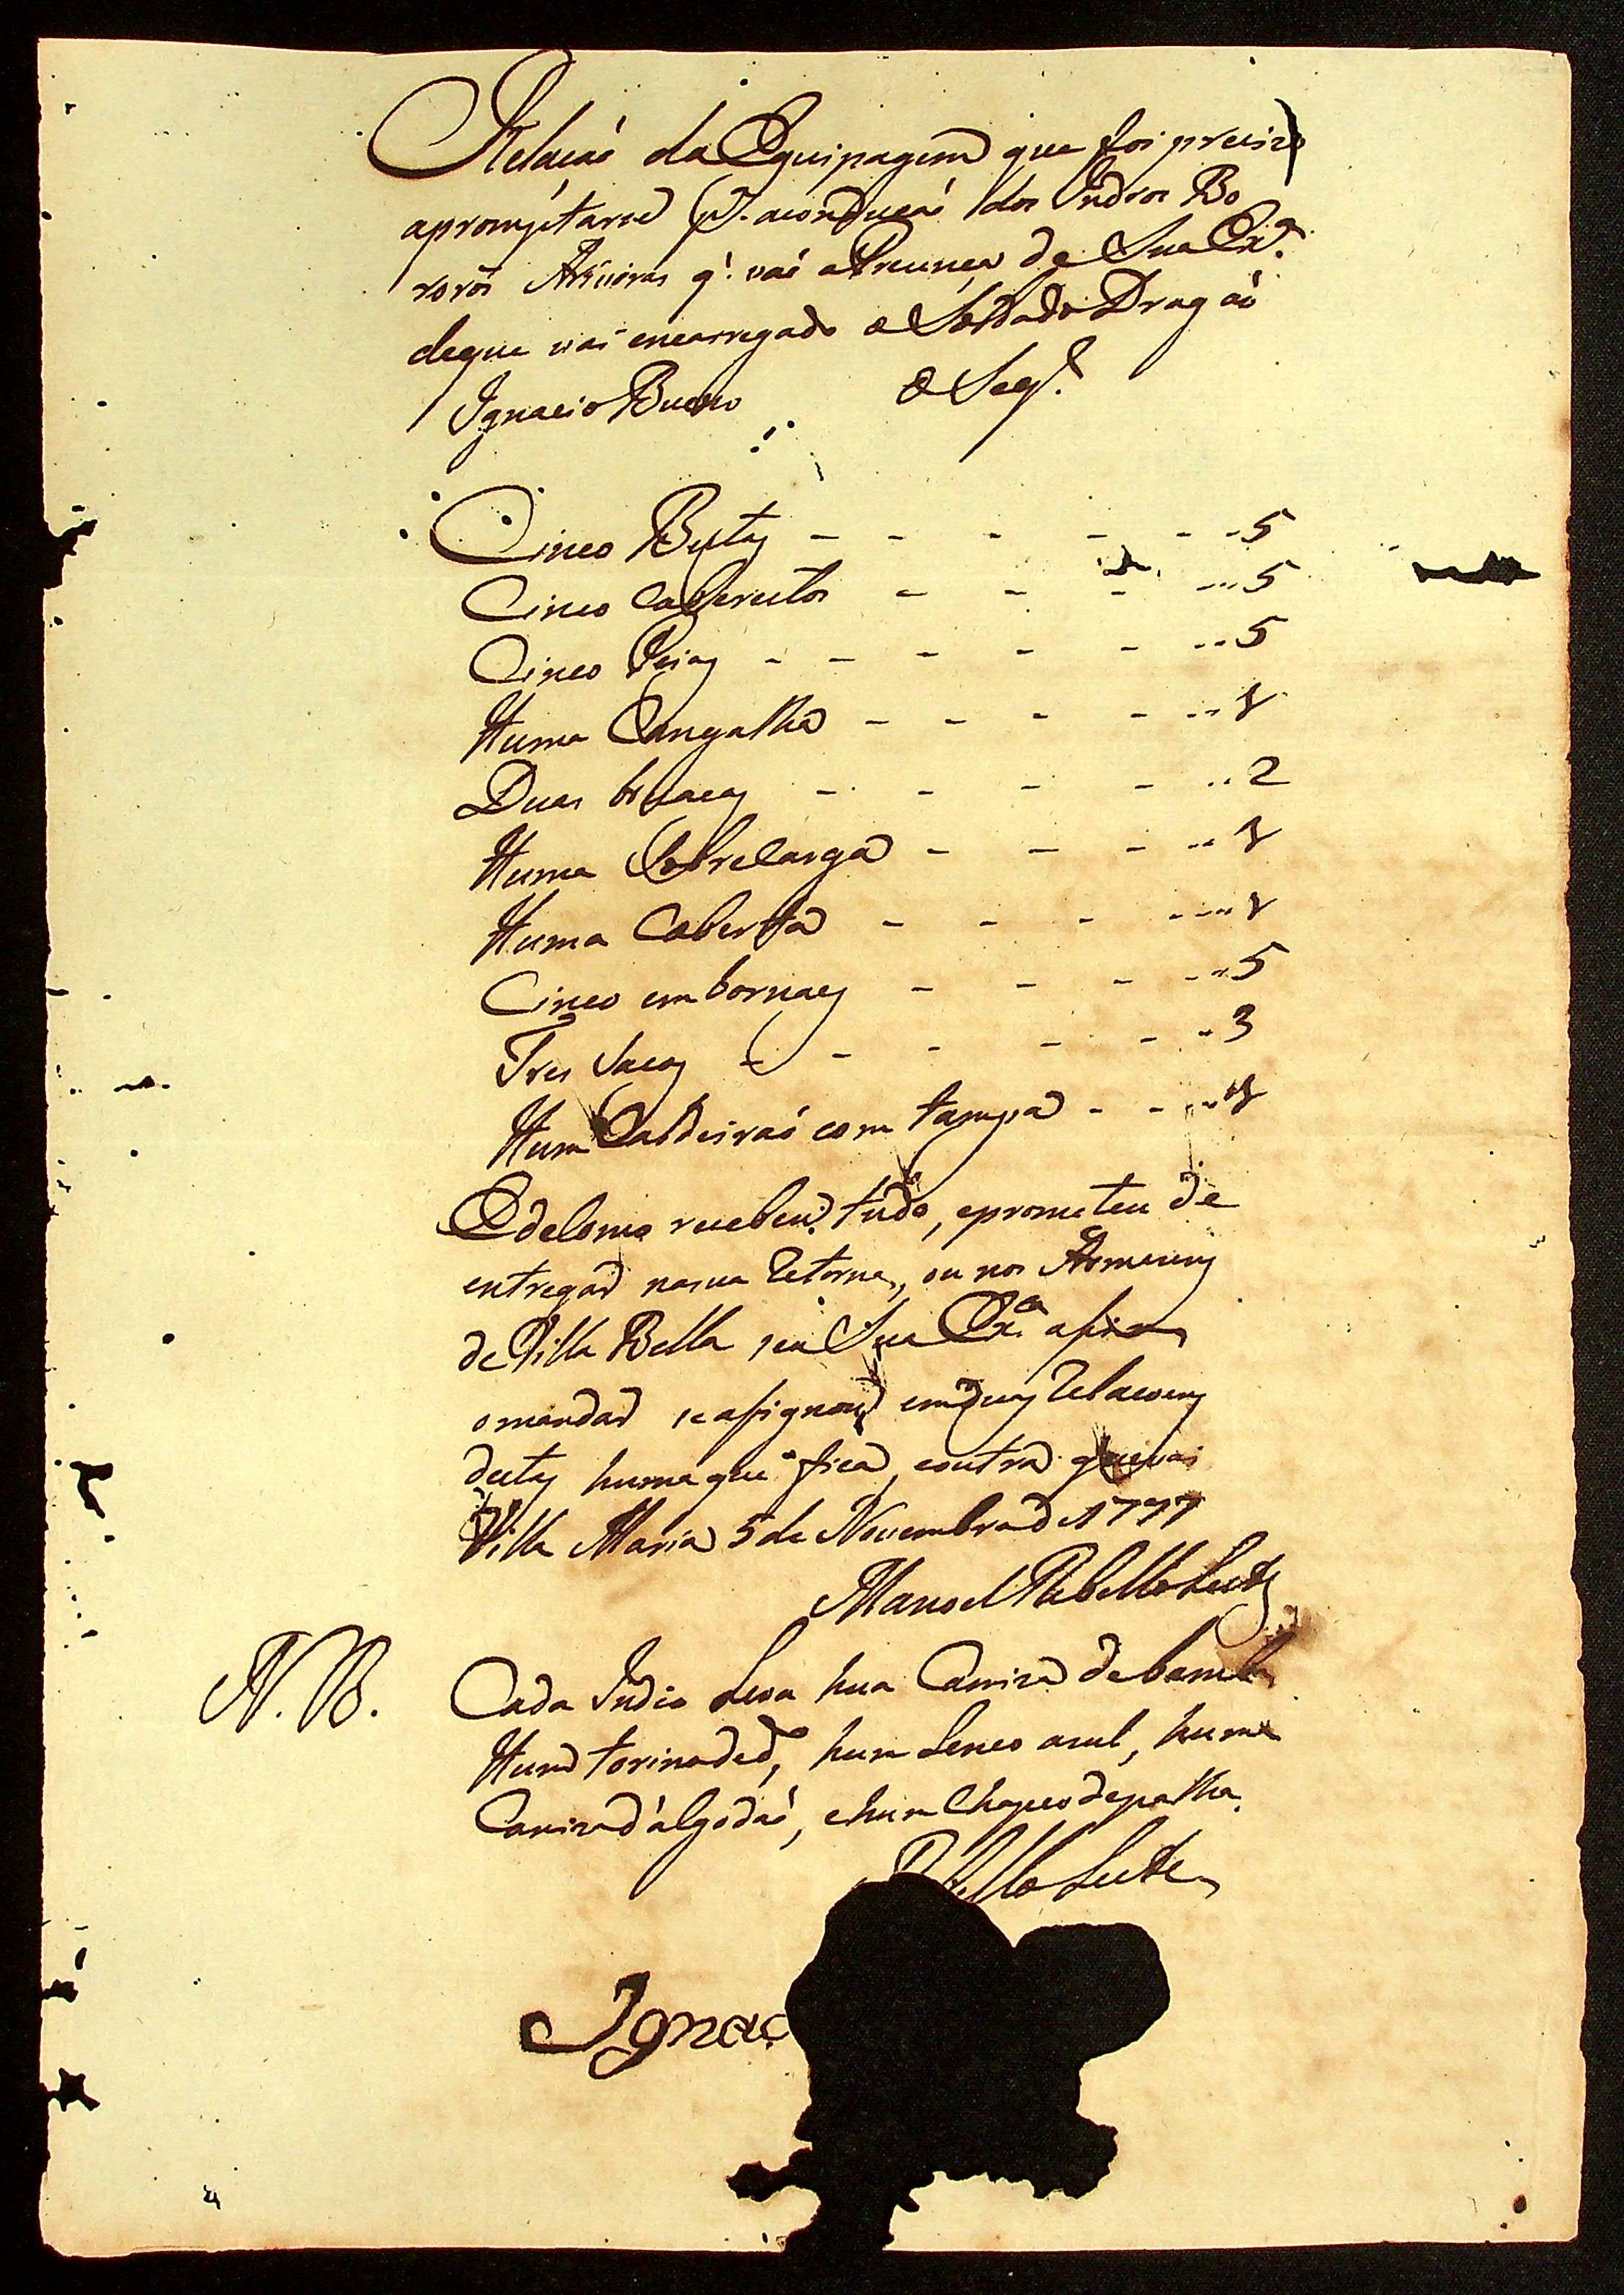 Relacaó da Equipagem que foi preciz
apromptarse p.ª aconduçaó dos Indios Bo
roròs q'. vaó a Prezença de Sua Ex.ª
deque vai encarregado o Soldado Dragaó
Ignacio Bueno o Seg.
Cinco Bestas - - - - - - 5
Cinco Cabrestos - - - - 5
Cinco Peias - - - - - - 5
Huma Cangalha - - - - - 1
Duas bruacas - - - - - 2
Huma Sobrecarga - - - - 1
Huma Coberta - - - - 1
Cinco embornaes - - - - 5
Tres Sacos - - - - - - 3
Hum Caldeiraó com tampa - - - 1
E decomo recebeu tudo, eprometeu de
entregar nasua Retorna, ou nos Armazens
de Villa Bella se Sua Ex.ª asim
omandar se asignou em duas Relacoens
destas huma que fica, eoutra que vai
Villa Maria 5 de Novembro de 1777
Manoel Rebello Leite
N. B. Cada Indio Leva hua Camiza de
Hum hum Lenco azul, huma
Camiza d'algodaó, ehum Chapeo depalha.
Rebello Leite
Ignac